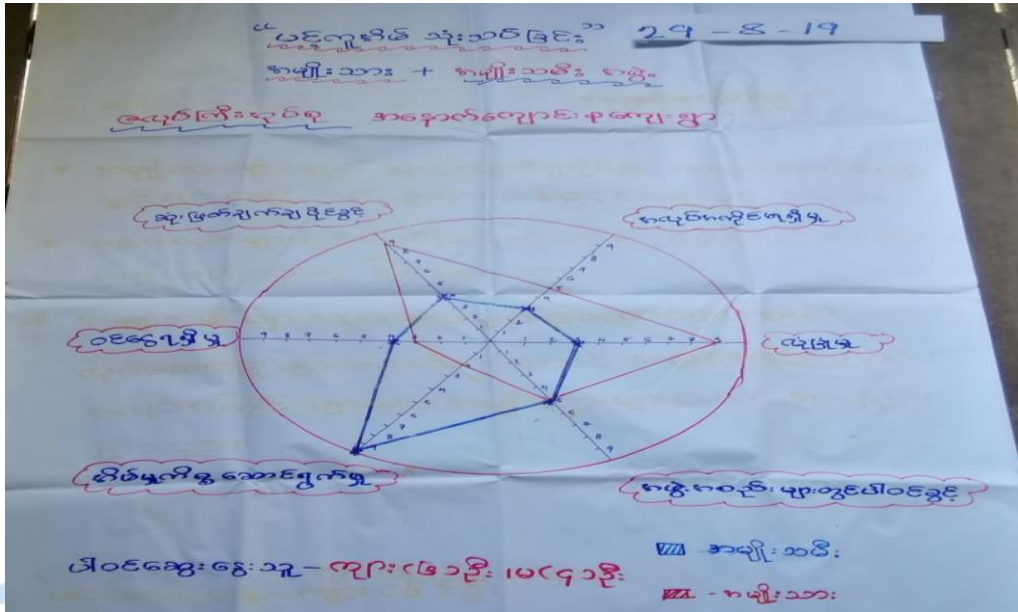 “ပင့်ကူအိမ် သုံးသပ်ခြင်း” 29 - 8 - 19
အမျိုးသား + အမျိုးသမီး အဖွဲ့
အနောက်ကျောင်းစု ကျေးရွာ
ဆုံးဖြတ်ချက်ချပိုင်ခွင့်
အလုပ်အကိုင်ရရှိမှု
ဝင်ငွေရရှိမှု
လုံခြုံမှု
အိမ်မှုကိစ္စ ဆောင်ရွက်မှု
အဖွဲ့အစည်းများတွင်ပါဝင်ခွင့်
ပါဝင်ဆွေးနွေးသူ - ကျား (၆) ဦး၊ မ (၄) ဦး
- အမျိုးသမီး
- အမျိုးသား